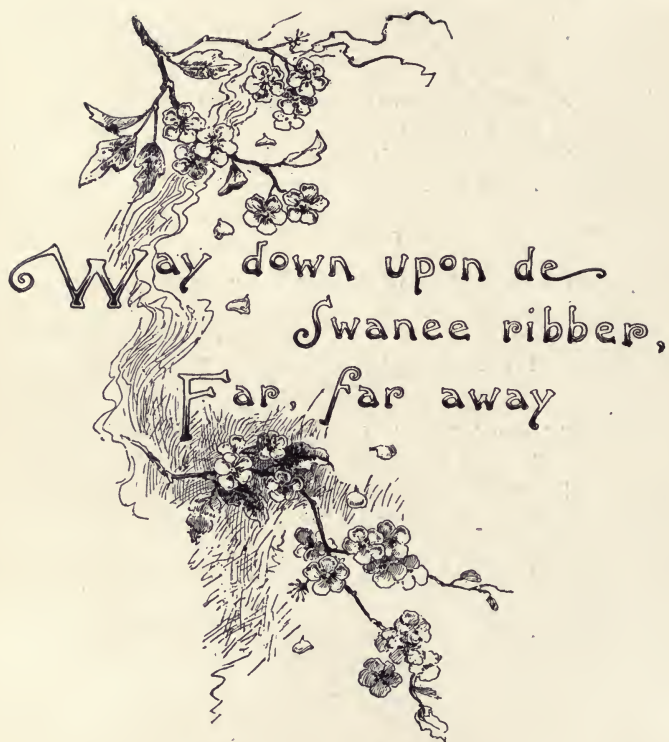 Way down upon de
Swanee ribber,
Far, far away